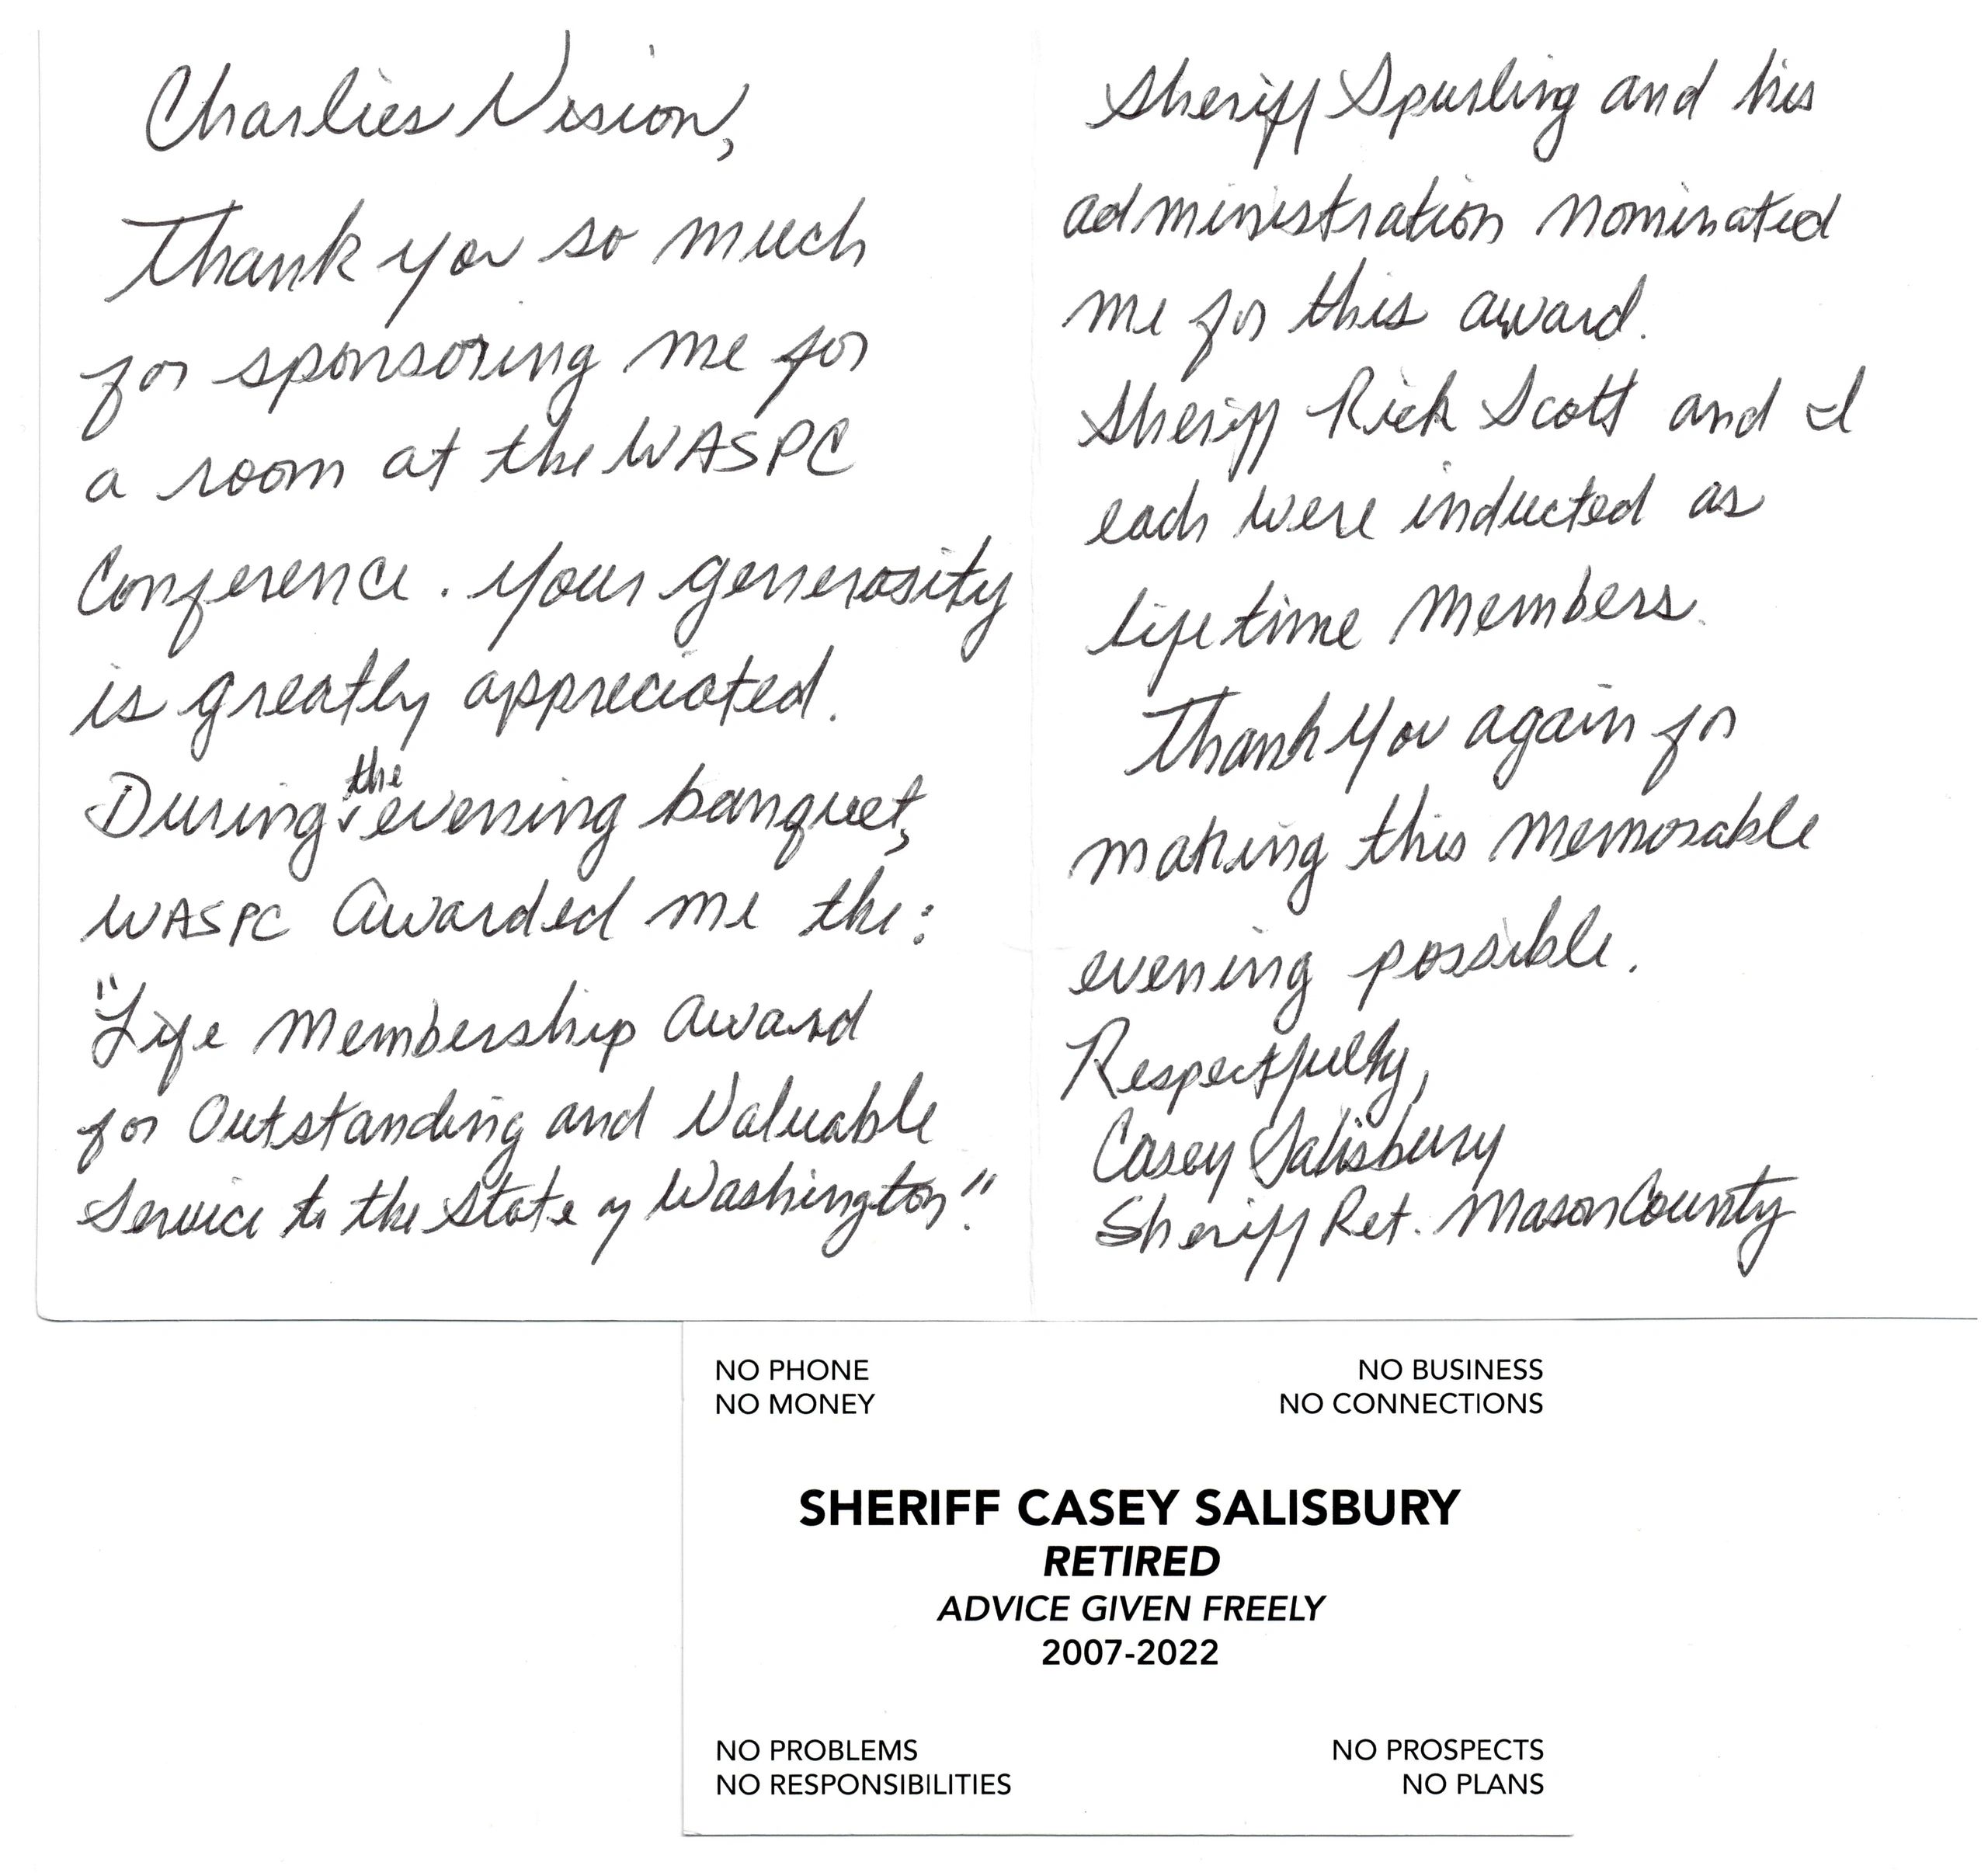 Charlies Vision,
Thank you so much
for sponsoring me for
a room at the WASPC
Conference. Your generosity
is greatly appreciated.
During the evening banquet,
WASPC Awarded me the:
"Life Membership Award
for Outstanding and Valuable
Service to the State of Washington".
Sheriff Spurling and his
administration nominated
me for this award.
Sheriff Rick Scott and I
each were inducted as
lifetime members.
Thank you again for
making this memorable
evening possible.
Respectfully,
Casey Salisbury
Sheriff Ret. Mason County
NO PHONE
NO MONEY
NO BUSINESS
NO CONNECTIONS
SHERIFF CASEY SALISBURY
RETIRED
ADVICE GIVEN FREELY
2007-2022
NO PROBLEMS
NO RESPONSIBILITIES
NO PROSPECTS
NO PLANS